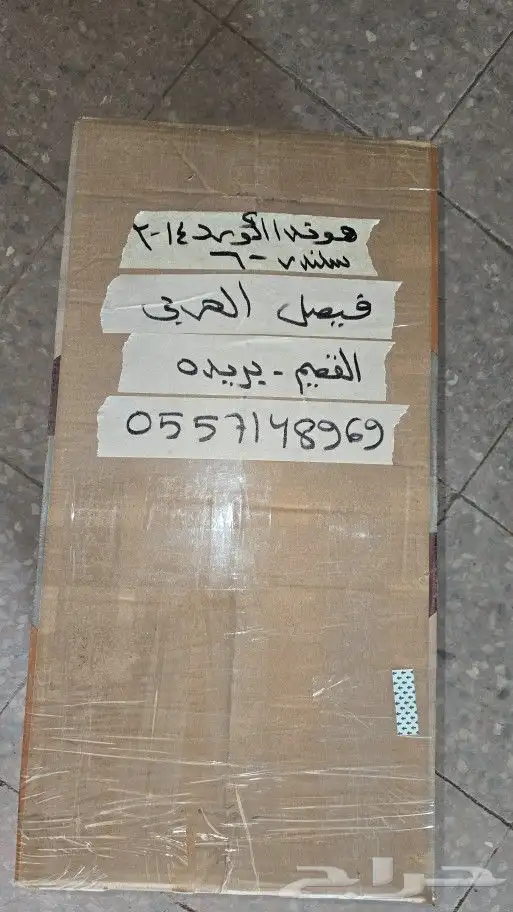 هوندا اكورد ٢٠١٤
سلندر ٦
فيصل الحربي
القصيم - بريده
0557148969
حراج